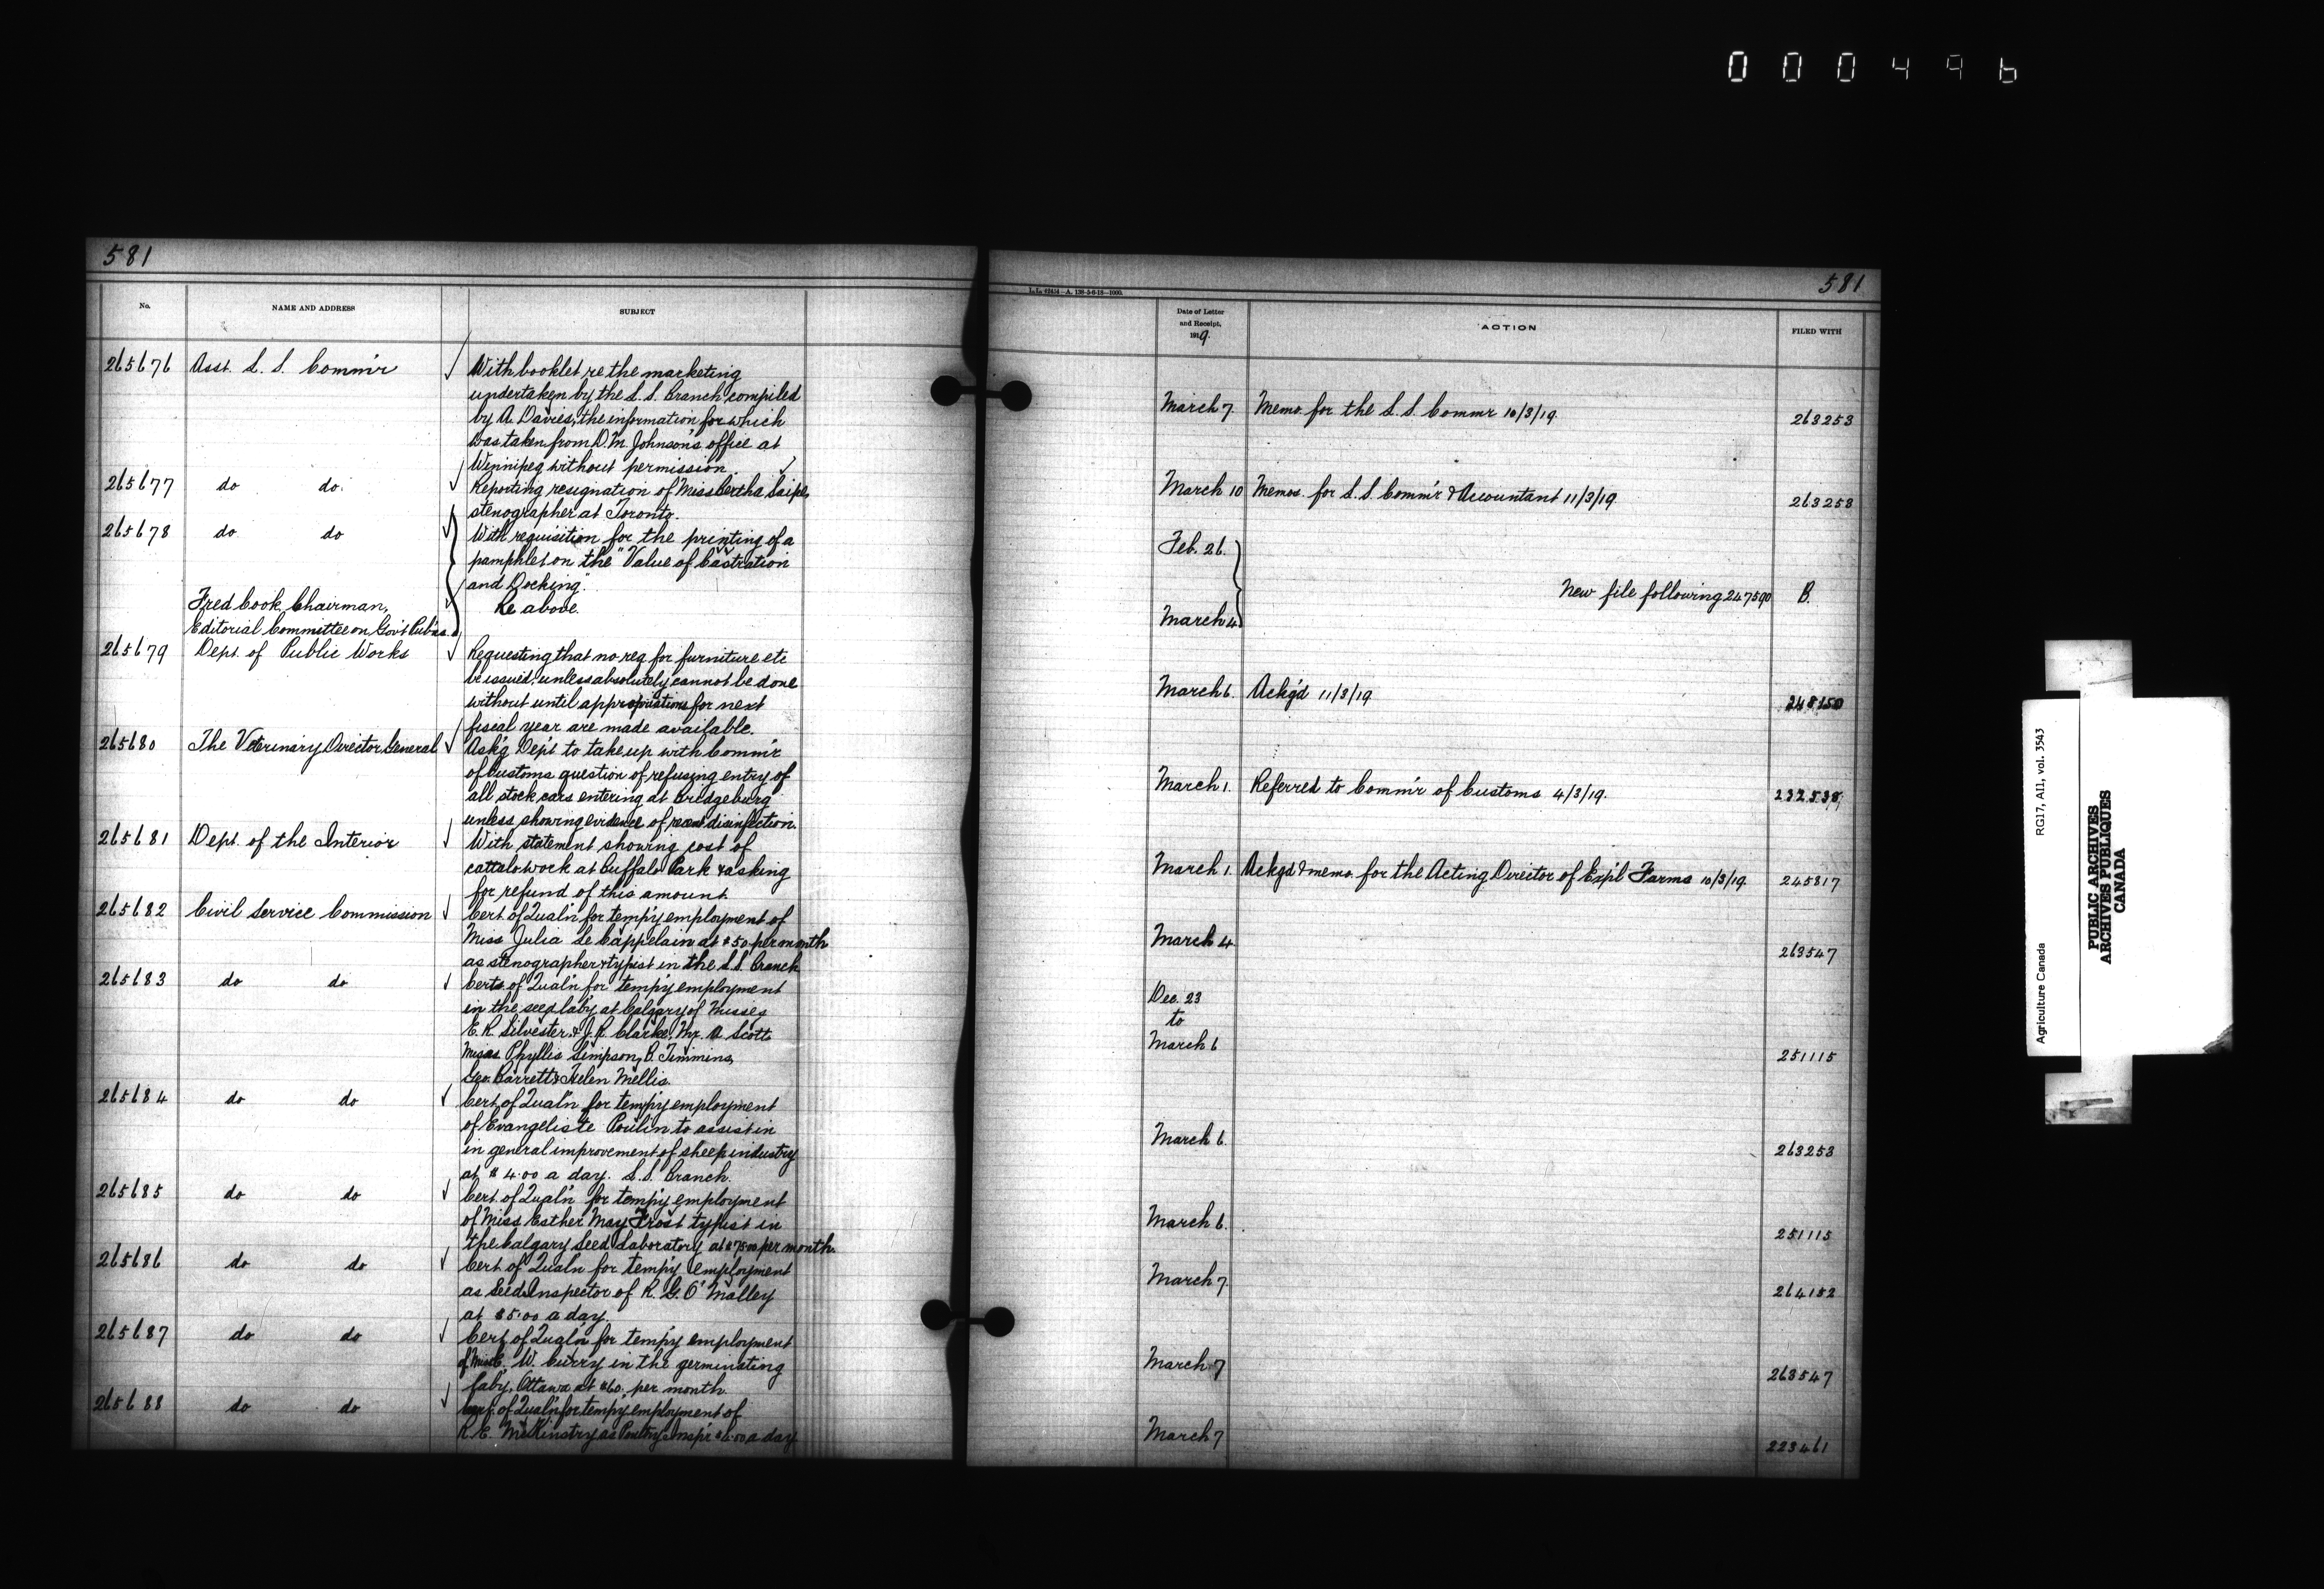 000496
581
No.
NAME AND ADDRESS
SUBJECT
265676 Asst. L. S. Comm'r With booklet re the marketing
undertaken by the L. S. Branch, compiled
by A. Davies, the information for which
was taken from D. M. Johnson's office at
Winnipeg without permission.
265677 do do. Reporting resignation of Miss Bertha Saipe,
stenographer at Toronto.
265678 do do With requisition for the printing of a
pamphlet on the "Value of Castration
and Docking".
Fred Cook, Chairman, Re above.
Editorial Committee on Gov't Pub'ns.
265679 Dept. of Public Works Requesting that no req. for furniture etc
be issued, unless absolutely cannot be done
without until appropriations for next
fiscal year are made available.
265680 The Veterinary Director General Ask'g Dep't to take up with Comm'r
of Customs question of refusing entry of
all stock cars entering at Bridgeburg
unless showing evidence of recent disinfection.
265681 Dept. of the Interior With statement showing cost of
cattalo work at Buffalo Park & asking
for refund of this amount.
265682 Civil Service Commission Cert. of Qual'n for temp'y employment of
Miss Julia Le Cappelain at $50 per month
as stenographer & typist in the L.S. Branch.
265683 do do Certs. of Qual'n for temp'y employment
in the seed lab'y at Calgary of Misses
E. R. Silvester & J. R. Clarke, Mr. A Scott
Misses Phyllis Simpson, B. Timmins,
Geo. Barrett & Helen Mellis.
265684 do do Cert. of Qual'n for temp'y employment
of Evangeliste Poulin to assist in
in general improvement of sheep industry
at $4.00 a day. L.S. Branch.
265685 do do Cert. of Qual'n for temp'y employment
of Miss Esther May Frost typist in
the Calgary Seed Laboratory at $75.00 per month.
265686 do do Cert. of Qual'n for temp'y employment
as Seed Inspector of R. G. O'Malley
at $5.00 a day.
265687 do do Cert. of Qual'n for temp'y employment
of Miss C. W. Curry in the germinating
laby, Ottawa at $60. per month.
265688 do do Cert. of Qual'n for temp'y employment of
R. E. McKinstry as Poultry Insp'r $4.00 a day
581
Date of Letter
and Receipt,
1919.
ACTION
FILED WITH
March 7. Memo. for the L. S. Commr 10/3/19. 263253
March 10 Memos. for L. S. Comm'r & Accountant 11/3/19. 263253
Feb. 26.
New file following 247590 B.
March 4.
March 6. Ackg'd 11/3/19 248150
March 1. Referred to Comm'r of Customs 4/3/19. 232538
March 1. Ackgd & memo. for the Acting Director of Exp'l Farms 10/3/19. 245817
March 4. 263547
Dec. 23
to
March 6 251115
March 6. 263253
March 6. 251115
March 7. 264152
March 7 263547
March 7 223461
Agriculture Canada RG17, A11, vol. 3543
PUBLIC ARCHIVES
ARCHIVES PUBLIQUES
CANADA